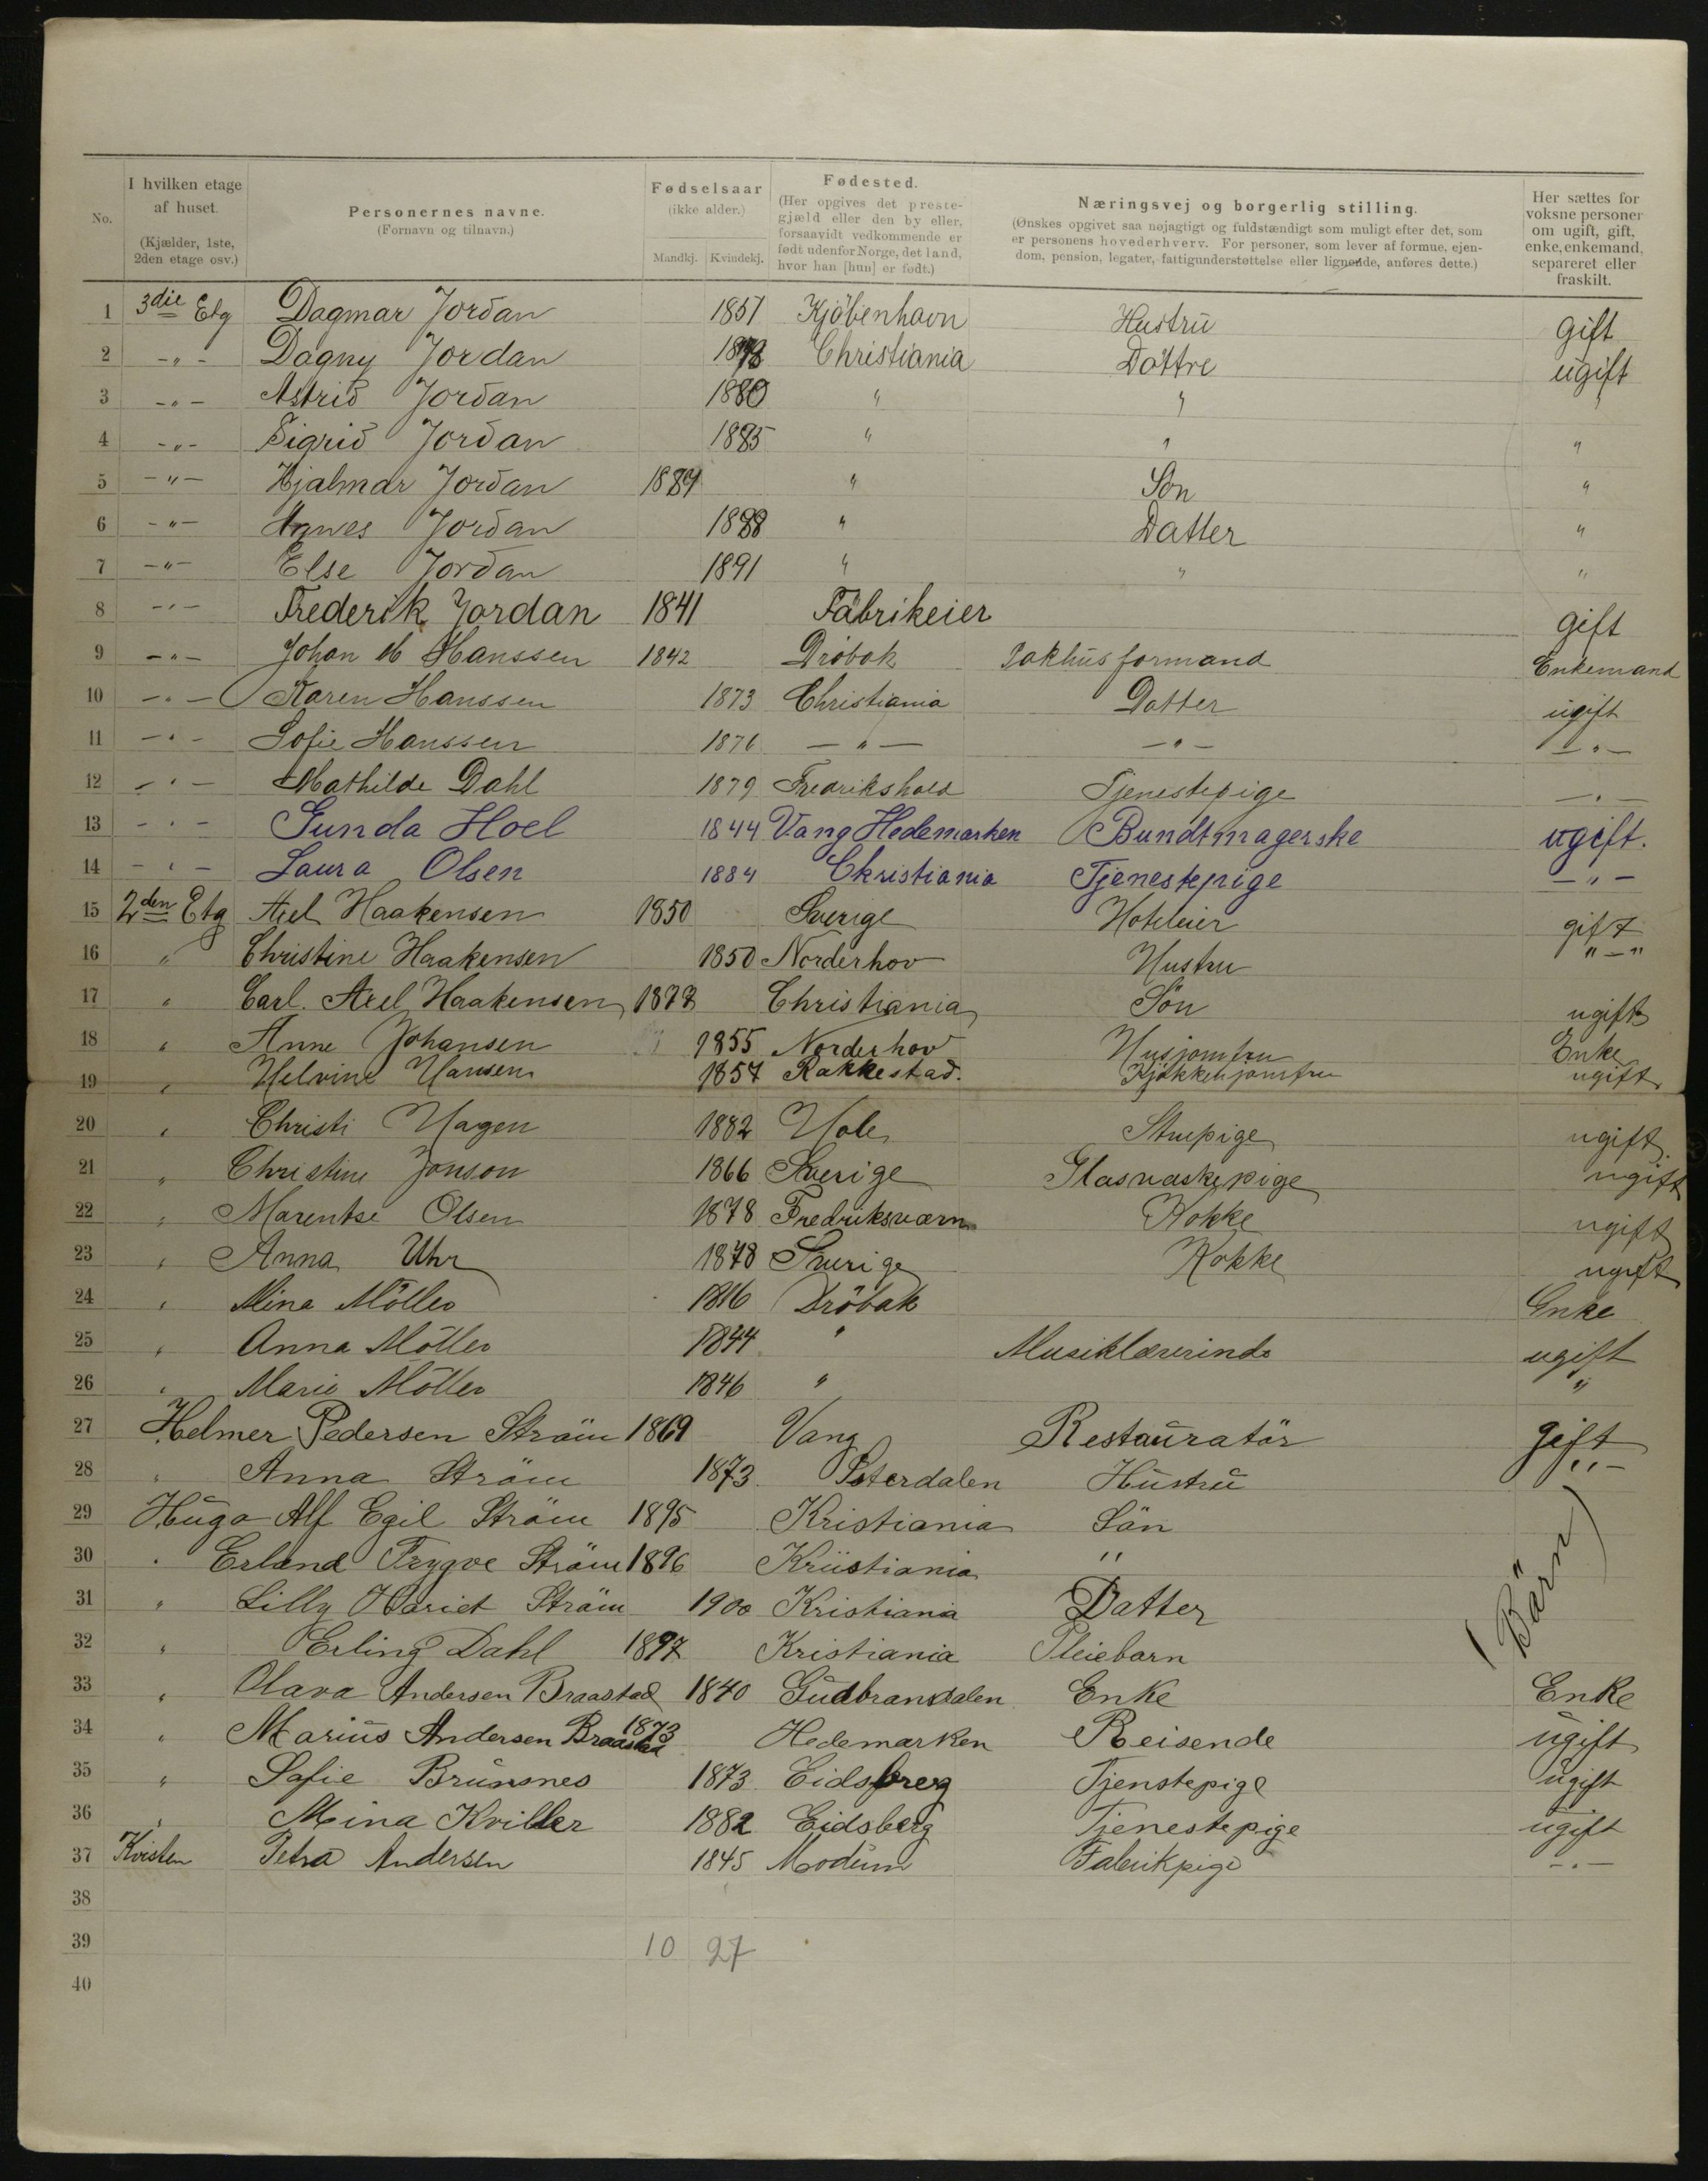 No.
I hvilken etage af huset. (Kjælder, 1ste, 2den etage osv.)
Personernes navne. (Fornavn og tilnavn.)
Fødselsaar (ikke alder.)
Mandkj. Kvindekj.
Fødested. (Her opgives det prestegjæld eller den by eller, forsaavidt vedkommende er født udenfor Norge, det land, hvor han [hun] er født.)
Næringsvej og borgerlig stilling. (Ønskes opgivet saa nøjagtigt og fuldstændigt som muligt efter det, som er personens hovederhverv. For personer, som lever af formue, ejendom, pension, legater, fattigunderstøttelse eller lignende, anføres dette.)
Her sættes for voksne personer om ugift, gift, enke, enkemand, separeret eller fraskilt.
1 3die Etg Dagmar Jordan 1851 Kjöbenhavn Hustru gift
2 -„- Dagny Jordan 1878 Christiania Döttre ugift
3 -„- Astrid Jordan 1880 „ „ „
4 -„- Sigrid Jordan 1885 „ „ „
5 -„- Hjalmar Jordan 1887 „ Sön „
6 -„- Agnes Jordan 1888 „ Datter „
7 -„- Else Jordan 1891 „ „ „
8 -„- Frederik Jordan 1841 Fabrikeier gift
9 -„- Johan M Hanssen 1842 Dröbak Pakhusformand Enkemand
10 -„- Karen Hanssen 1873 Christiania Datter ugift
11 -„- Sofie Hanssen 1876 -„- -„- -„-
12 -„- Mathilde Dahl 1879 Fredrikshald Tjenestepige -„-
13 -„- Gunda Hoel 1844 Vang Hedemarken Bundtmagerske ugift.
14 -„- Laura Olsen 1884 Christiania Tjenestepige -„-
15 2den Etg Axel Haakensen 1850 Sverige Hoteleier gift
16 „ Christine Haakensen 1850 Norderhov Hustru „-„
17 „ Carl. Axel Haakensen 1878 Christiania Sön ugift
18 „ Anne Johansen 1855 Norderhov Husjomfru Enke
19 „ Helvine Hansen 1857 Rakkestad. Kjökkenjomfru ugift
20 „ Christi Hagen 1882 Hole Stuepige ugift
21 „ Christine Jonson 1866 Sverige Glasvaskepige ugift
22 „ Marentse Olsen 1878 Fredriksværn Kokke ugift
23 „ Anna Uhr 1878 Sverige Kokke ugift
24 „ Mina Möller 1816 Dröbak Enke
25 „ Anna Möller 1844 „ Musiklærerinde ugift
26 „ Marie Möller 1846 „ „
27 Helmer Pedersen Ström 1869 Vang Restauratör gift
28 „ Anna Ström 1873. Österdalen Hustru „-
29 Hugo Alf Egil Ström 1895 Kristiania Sön
30 „ Erland Trygve Ström 1896 Kristiania „
31 „ Lilly Hariet Ström 1900 Kristiania Datter
(Bärn)
32 „ Erling Dahl 1897 Kristiania Pleiebarn
33 „ Olava Andersen Braastad 1840 Gudbransdalen Enke Enke
34 „ Marius Andersen Braastad 1873 Hedemarken Reisende ugift
35 „ Sofie Brunsnes 1873. Eidsberg Tjenstepige ugift
36 „ Mina Kviller 1882 Eidsberg Tjenestepige ugift
37 Kvisten Petra Andersen 1845 Modum Fabrikpige -„-
38
39 10 27
40